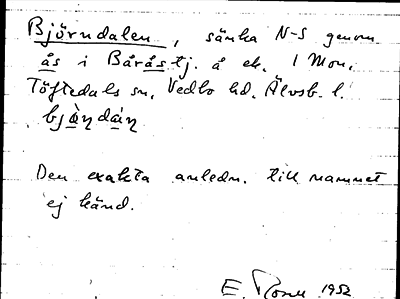 Björndalen, sänka N-S genom
ås i Båråstj. å ek. 1 Mon,
Töftedals sn, Vedbo hd. Älvsb. l.
bjɷ̀ṇdàṇ
Den exakta anledn. till namnet
ej känd.
E. 1952